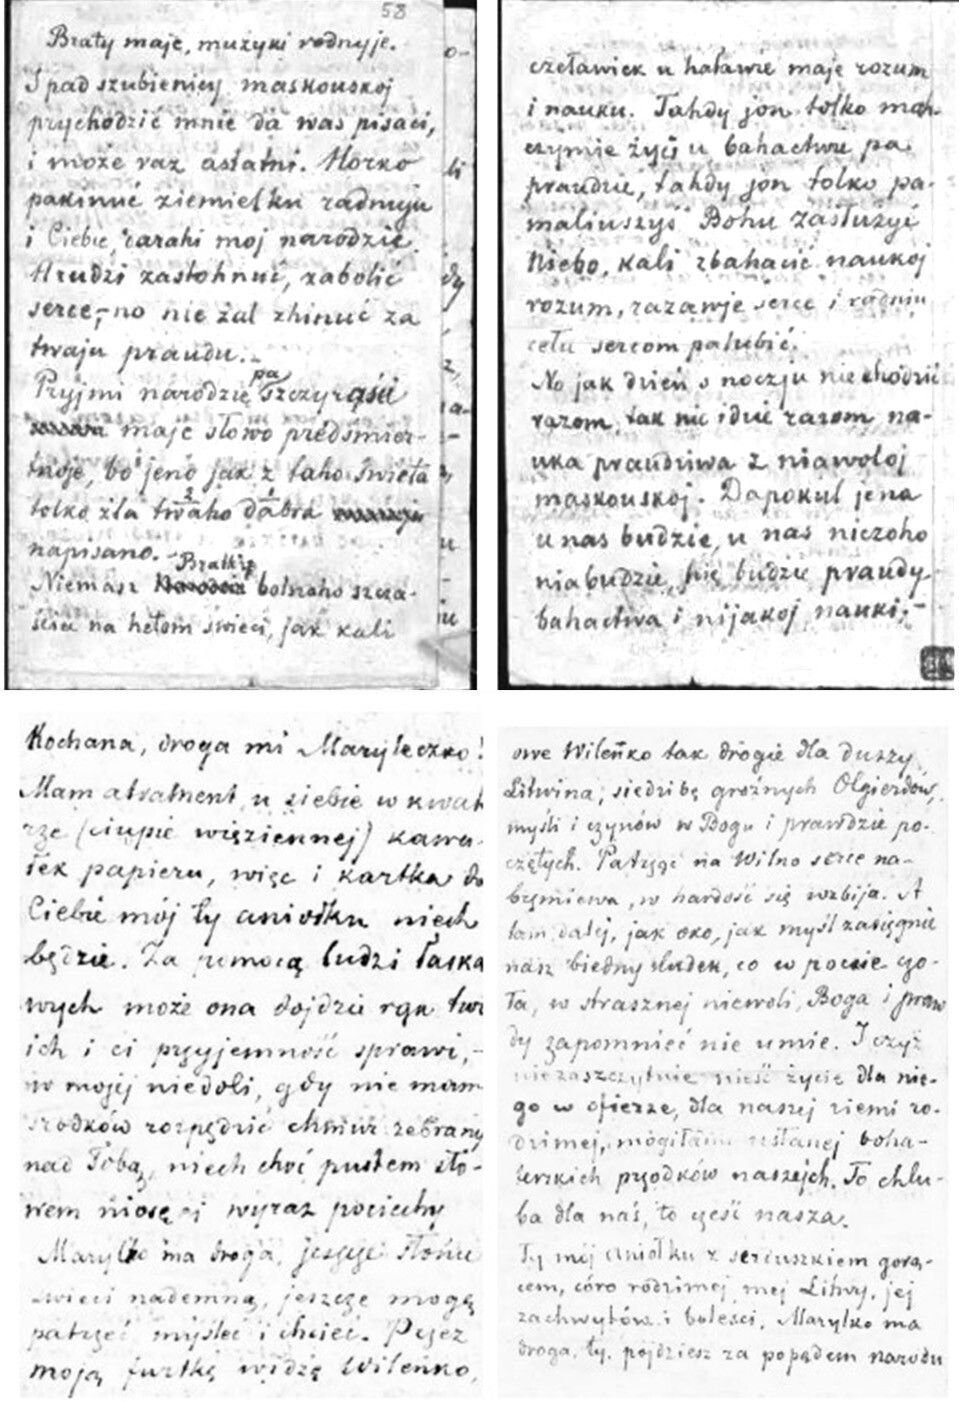 58
Braty maje, mużyki rodnyje.
I pad szubienicy maskouskoj
prychodzić mnie da was pisaci,
i może raz astatni. Horko
pakinuć ziemielku radnuju
i Ciebie, zarahi moj narodzie.
Hrudzi zastohnuć, zabolić
serce,- no nie żal zhinuć za
twaju praudu.-
Pryjmi narodzie pa szczyrąści
maje słowo predśmier-
tnoje, bo jeno jak z taho świeta
tolko dla twaho dabra
napisano.
Niemasz Bratkie bolszoho szcza-
ścia na hetom świeci, jak kali
czeławiek u haławie maje rozum
i nauku. Tahdy jon tolko mah-
czymie żyć u bahactwie pa
praudzie, tahdy jon tolko pa-
maliuszyś Bohu zasłużyć
Niebo, kali zbahacić naukoj
rozum, razawje serce i radniu
cełu sercom palubić.
No jak dzień s noczju nie chodzić
razom, tak nie idzie razom na-
uka praudziwa z niawoloj
maskouskoj. Dapokul jena
u nas budzie, u nas niczoho
niabudzie, nie budzie praudy
bahactwa i nijakoj nauki;-
Kochana, droga mi Maryleczko!
Mam atrament u siebie w kwat
rze (ciupie więziennej) kawa-
łek papieru, więc i kartka do
Ciebie mój ty aniołku niech
będzie. Za pomocą ludzi łaska
wych może ona dojdzie rąk twó
ich i ci przyjemność sprawi,-
w mojej niedoli, gdy nie mam
środków rozpędzić chmur zebrany
nad Tobą, niech choć pustem sło-
wem niosę ci wyraz pociechy
Marylko ma droga, jeszcze słońce
świeci nademną, jeszcze mogę
patrzeć myśleć i chcieć. Przez
moją furtkę widzę Wileńko,
owe Wileńko tak drogie dla duszy
Litwina; siedzibę groźnych Olgierdów,
myśli i czynów w Bogu i prawdzie po-
czętych. Patrząc na Wilno serce na-
brzmiewa, w hardość się wzbija. A
tam dalej, jak oko, jak myśl zasięgnie
nasz biedny ludek, co w pocie czo-
ła, w strasznej niewoli, Boga i praw
dy zapomnieć nie umie. I czyż
niezaszczytnie nieść życie dla nie-
go w ofierze, dla naszej ziemi ro-
dzimej, mogiłami usłanej boha-
terskich przodków naszych. To chlu-
ba dla nas, to cześć nasza.
Ty mój aniołku z serduszkiem gorą-
cem, córo rodzimej mej Litwy, jej
zachwytów i boleści, Marylko ma
droga, ty pójdziesz za popędem narodu